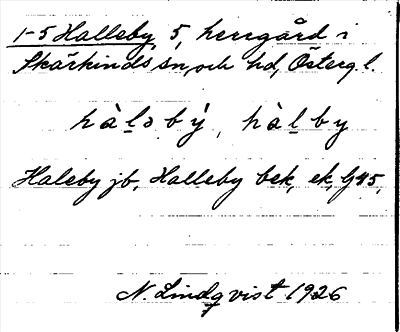 1-5 Halleby, 5, herrgård i
Skärkinds sn, och hd, Österg. l.
hàl̲ə bý, hàl̲ by
Haleby jb, Halleby bek, ek, G 45,
N. Lindqvist 1926